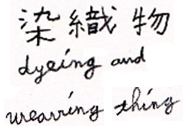 染織物
dyeing and
wearring thing